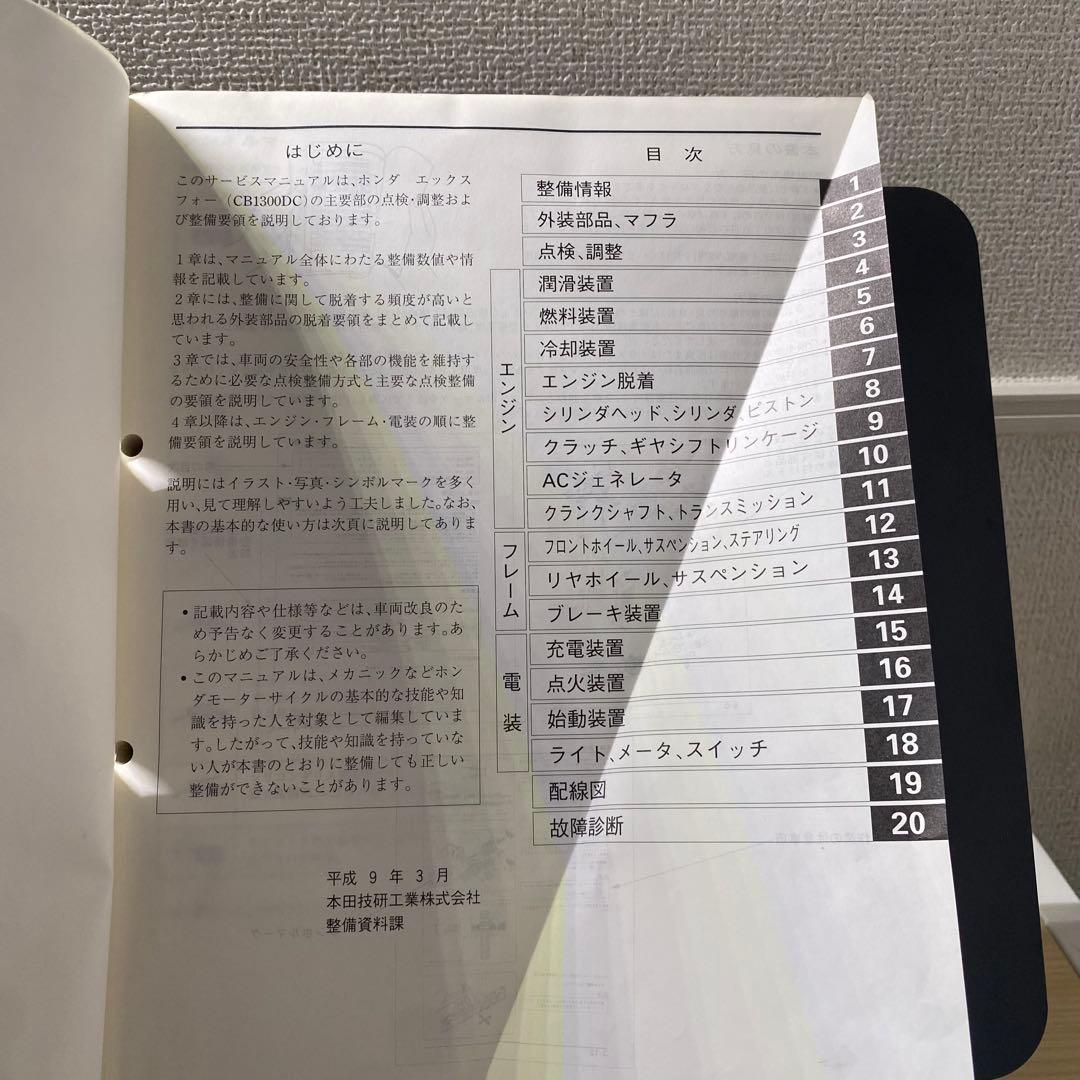 はじめに
このサービスマニュアルは、ホンダ　エックス
フォー（CB1300DC）の主要部の点検・調整およ
び整備要領を説明しております。
1章は、マニュアル全体にわたる整備数値や情
報を記載しています。
2章には、整備に関して脱着する頻度が高いと
思われる外装部品の脱着要領をまとめて記載し
ています。
3章では、車両の安全性や各部の機能を維持す
るために必要な点検整備方式と主要な点検整備
の要領を説明しています。
4章以降は、エンジン・フレーム・電装の順に整
備要領を説明しています。
説明にはイラスト・写真・シンボルマークを多く
用い、見て理解しやすいよう工夫しました。なお、
本書の基本的な使い方は次頁に説明してありま
す。
・記載内容や仕様等などは、車両改良のた
め予告なく変更することがあります。あ
らかじめご了承ください。
・このマニュアルは、メカニックなどホン
ダモーターサイクルの基本的な技能や知
識を持った人を対象として編集していま
す。したがって、技能や知識を持っていな
い人が本書のとおりに整備しても正しい
整備ができないことがあります。
平成 9 年 3 月
本田技研工業株式会社
整備資料課
目 次
整備情報 1
外装部品、マフラ 2
点検、調整 3
エンジン
潤滑装置 4
燃料装置 5
冷却装置 6
エンジン脱着 7
シリンダヘッド、シリンダ、ピストン 8
クラッチ、ギヤシフトリンケージ 9
ACジェネレータ 10
クランクシャフト、トランスミッション 11
フレーム
フロントホイール、サスペンション、ステアリング 12
リヤホイール、サスペンション 13
ブレーキ装置 14
電装
充電装置 15
点火装置 16
始動装置 17
ライト、メータ、スイッチ 18
配線図 19
故障診断 20